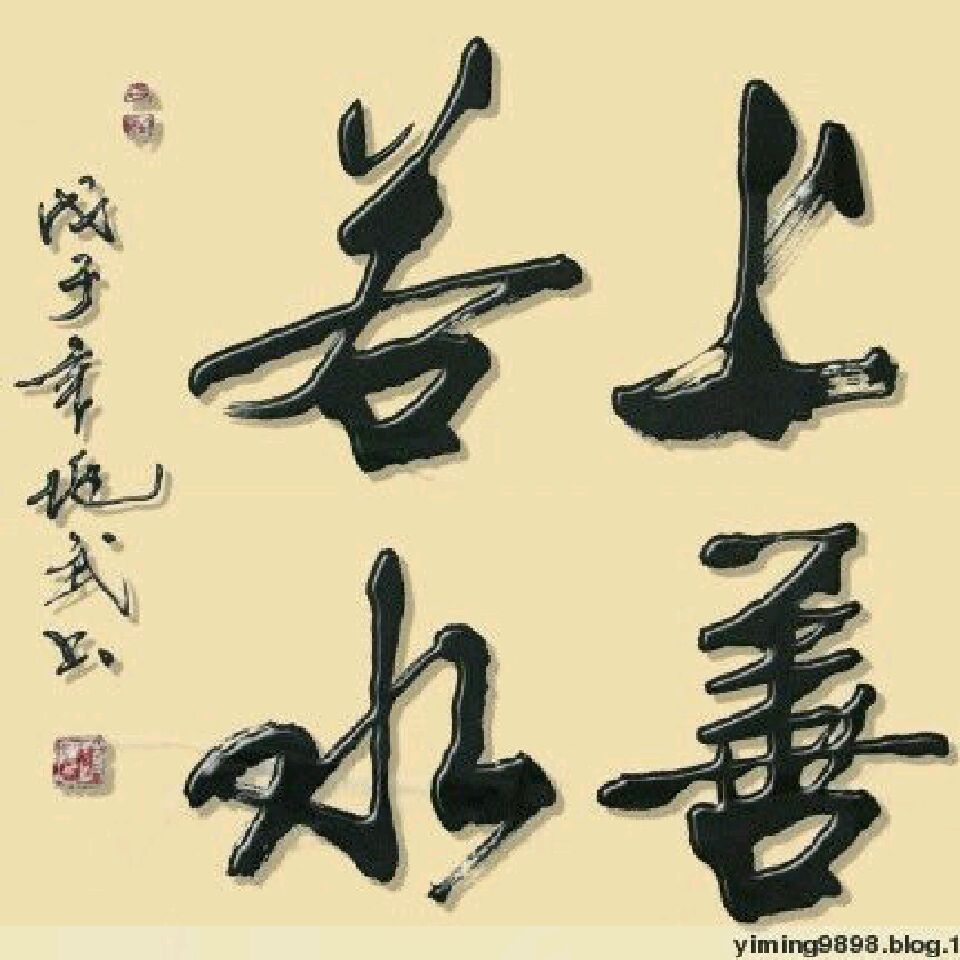 上善
若水
戊子年
武书
yiming9898.blog.1